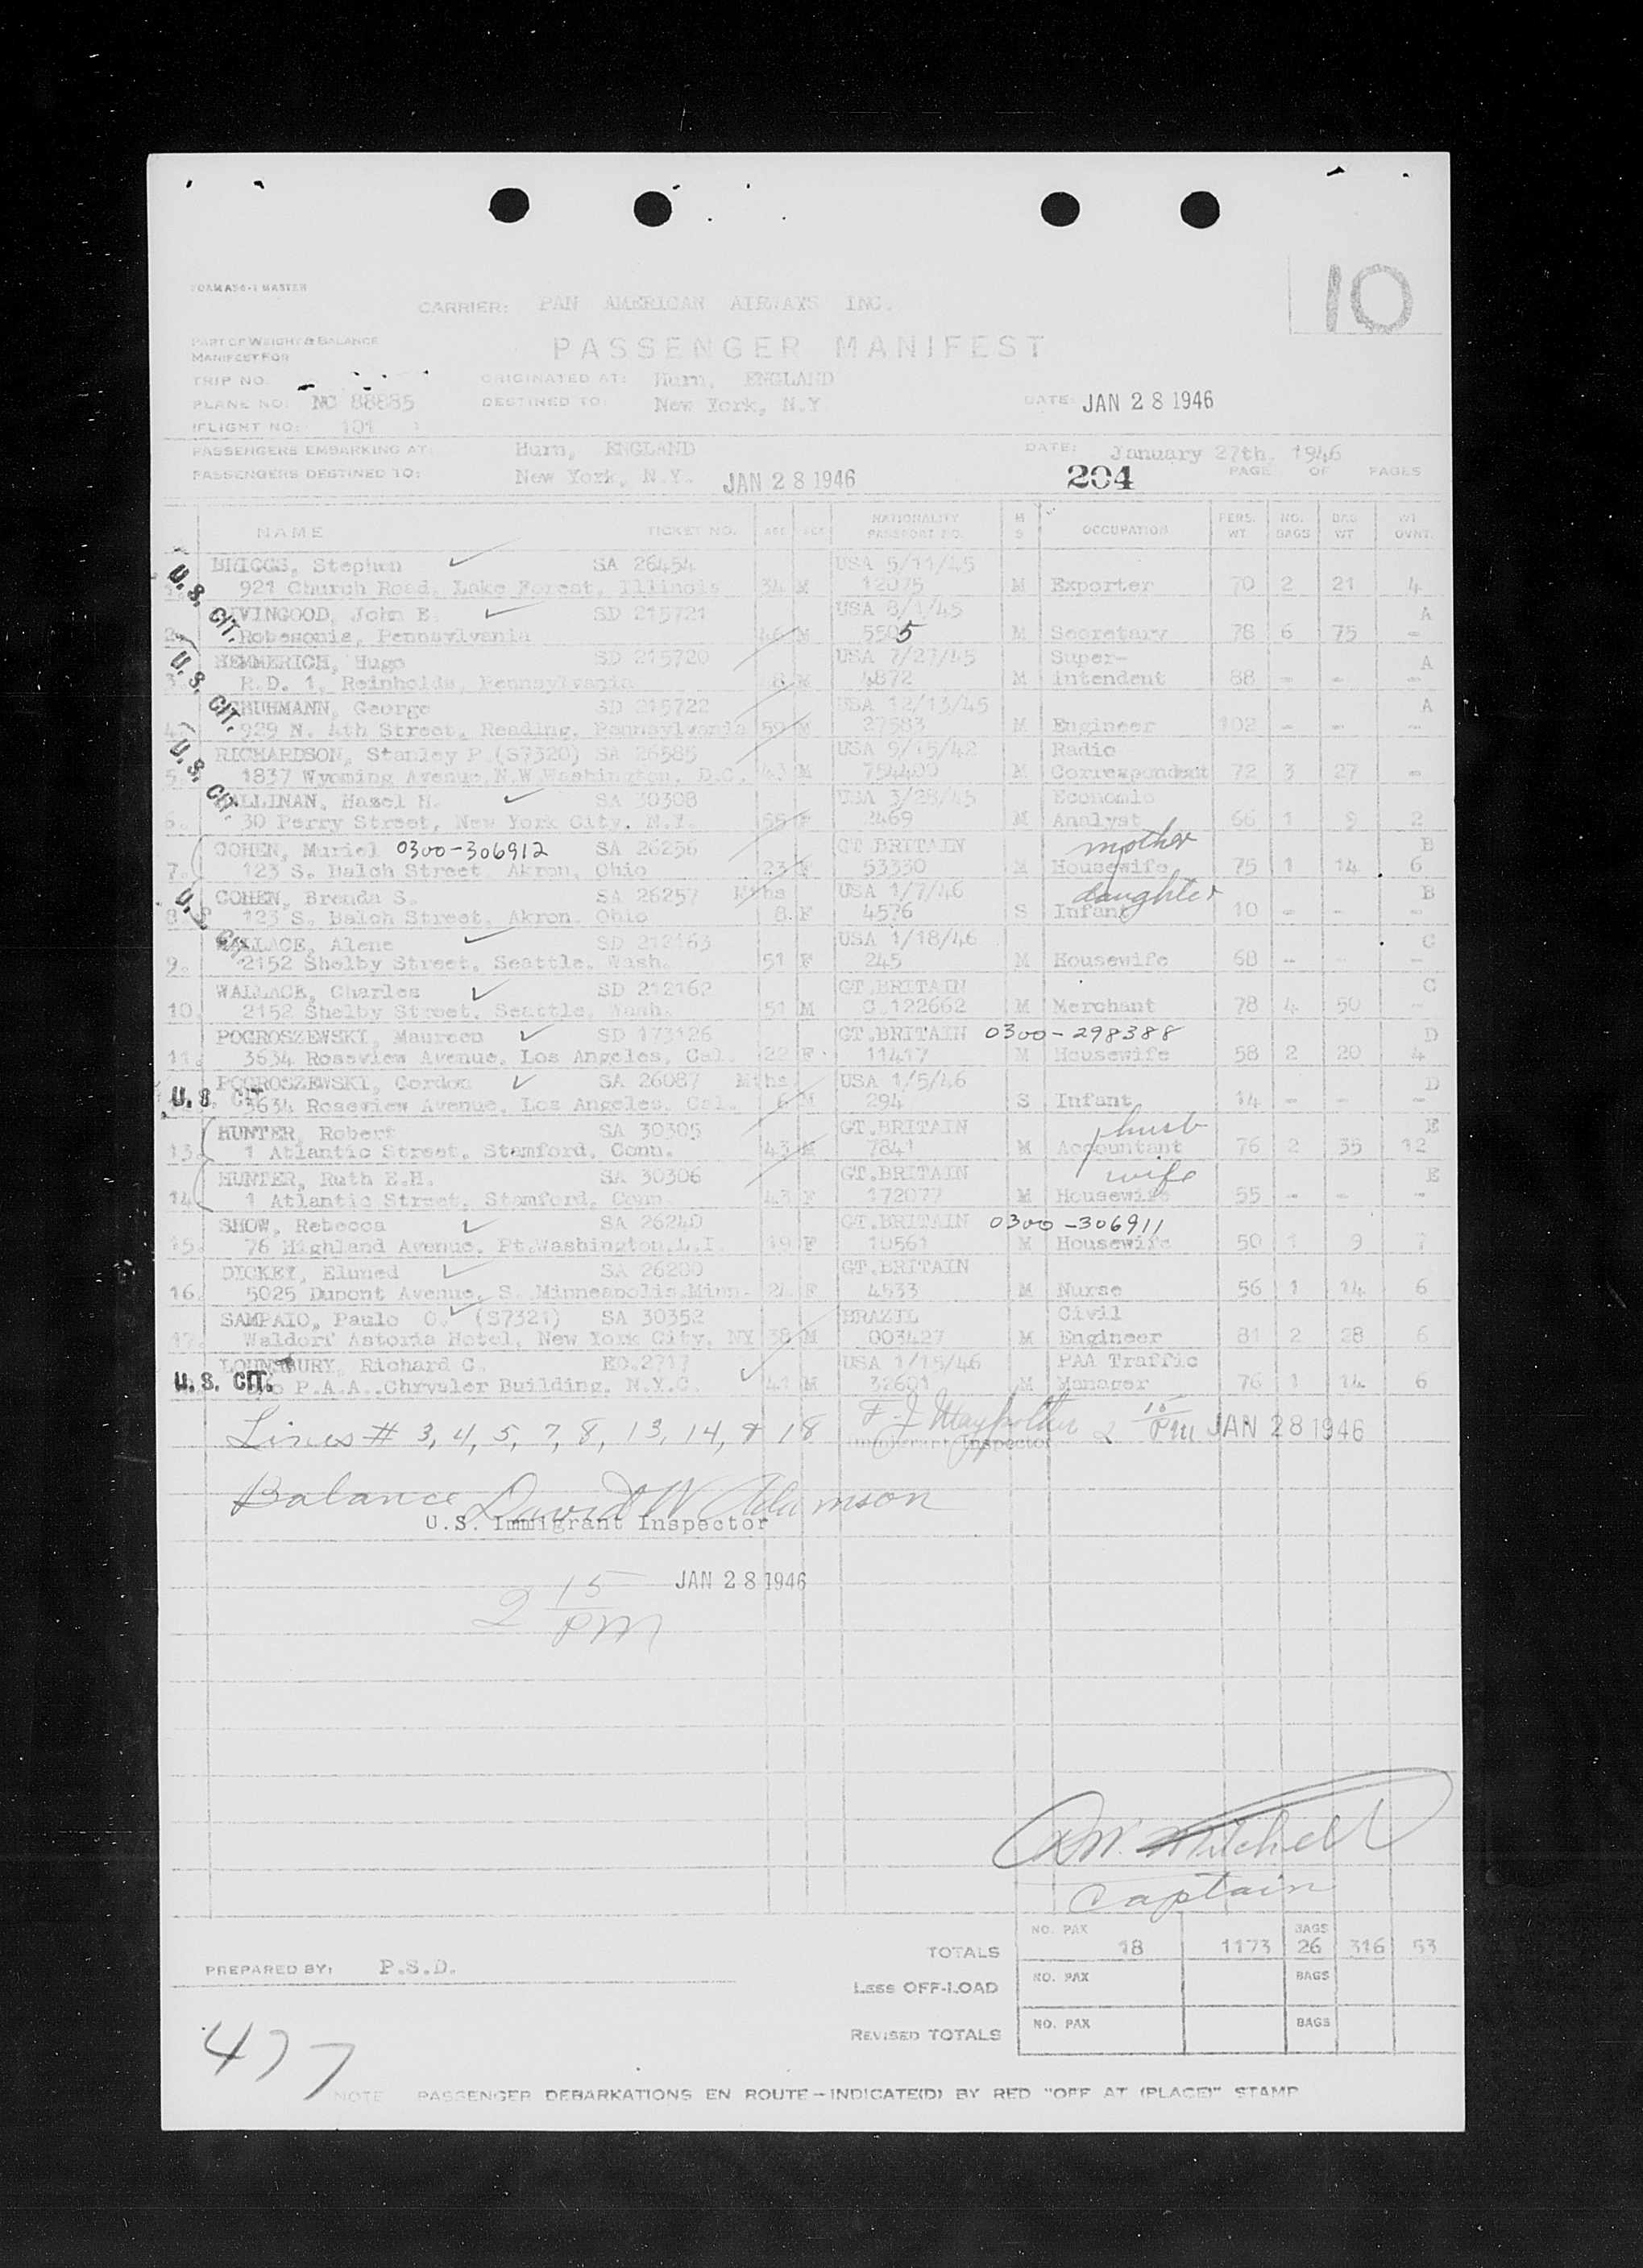 10
FORM A50-1 MASTER
CARRIER: PAN AMERICAN AIRWAYS INC.
PART OF WEIGHT & BALANCE
MANIFEST FOR
PASSENGER MANIFEST
TRIP NO. ORIGINATED AT: Hurn, ENGLAND
PLANE NO: NC 88885 DESTINED TO: New York, N.Y. DATE: JAN 28 1946
(FLIGHT NO: 101 )
PASSENGERS EMBARKING AT: Hurn, ENGLAND DATE: January 27th. 1946
PASSENGERS DESTINED TO: New York, N.Y. JAN 28 1946 204 PAGE OF PAGES
NAME TICKET NO. AGE SEX NATIONALITY PASSPORT NO. M S OCCUPATION PERS. WT NO. BAGS BAG WT WT OVNT.
BRIGGS, Stephen SA 26454 USA 5/11/45
1. 921 Church Road, Lake Forest, Illinois 34 M 12075 M Exporter 70 2 21 4
U.S. CIT.
LIVINGOOD, John E. SD 215721 USA 8/1/45 A
2. Robesonia, Pennsylvania 46 M 5505 M Secretary 78 6 75 -
HEMMERICH, Hugo SD 215720 USA 7/27/45 Super- A
3. R.D. 1, Reinholds, Pennsylvania M 4872 M intendent 88 - - -
U.S. CIT.
SCHUHMANN, George SD 215722 USA 12/13/45 A
4. 929 N. 4th Street, Reading, Pennsylvania 59 M 27583 M Engineer 102 - - -
RICHARDSON, Stanley P.(S7320) SA 26585 USA 9/15/42 Radio
5. 1837 Wyoming Avenue,N.W.Washington, D.C. 43 M 754400 M Correspondent 72 3 27 -
U.S. CIT.
HALLINAN, Hazel H. SA 30308 USA 3/28/45 Economic
6. 30 Perry Street, New York City, N.Y. 55 F 2469 M Analyst 66 1 9 2
COHEN, Muriel 0300-306912 SA 26256 GT BRITAIN mother B
7. 123 S. Balch Street, Akron, Ohio 23 F 53330 M Housewife 75 1 14 6
COHEN, Brenda S. SA 26257 Mths USA 1/7/46 daughter B
8. 123 S. Balch Street, Akron, Ohio 8 F 4576 S Infant 10 - - -
U.S. CIT
WALLACE, Alene SD 212163 USA 1/18/46 C
9. 2152 Shelby Street, Seattle, Wash. 51 F 245 M Housewife 68 - - -
WALLACE, Charles SD 212162 GT.BRITAIN C
10. 2152 Shelby Street, Seattle, Wash. 51 M C.122662 M Merchant 78 4 50 -
POGROSZEWSKI, Maureen SD 173126 GT.BRITAIN 0300-298388 D
11. 3634 Roseview Avenue, Los Angeles, Cal. 22 F 11417 M Housewife 58 2 20 4
POGROSZEWSKI, Gordon SA 26087 Mths USA 1/5/46 D
U.S. CIT 3634 Roseview Avenue, Los Angeles, Cal. 6 M 294 S Infant 14 - - -
HUNTER, Robert SA 30305 GT.BRITAIN husb E
13. 1 Atlantic Street, Stamford, Conn. 43 M 7841 M Accountant 76 2 35 12
HUNTER, Ruth E.H. SA 30306 GT.BRITAIN wife E
14. 1 Atlantic Street, Stamford, Conn. 43 F 172077 M Housewife 55 - - -
SHOW, Rebecca SA 26240 GT.BRITAIN 0300-306911
15. 76 Highland Avenue, Pt.Washington,L.I. 19 F 10561 M Housewife 50 1 9 7
DICKEY, Eluned SA 26200 GT.BRITAIN
16. 5025 Dupont Avenue, S. Minneapolis,Minn. 24 F 4533 M Nurse 56 1 14 6
SAMPAIO, Paulo O. (S7321) SA 30352 BRAZIL Civil
17. Waldorf Astoria Hotel, New York City, NY 38 M 003427 M Engineer 81 2 28 6
LOUNSBURY, Richard C. EO.2717 USA 1/15/46 PAA Traffic
U.S. CIT. c/o P.A.A. Chrysler Building, N.Y.C. 41 M 32601 M Manager 76 1 14 6
Lines # 3, 4, 5, 7, 8, 13, 14, & 18 2 15 PM JAN 28 1946
Immigrant Inspector
Balance David W Adamson
U.S. Immigrant Inspector
2 15 PM JAN 28 1946
R.W. Mitchell
Captain
TOTALS NO. PAX 18 1173 BAGS 26 316 53
PREPARED BY: P.S.D.
LESS OFF-LOAD NO. PAX BAGS
REVISED TOTALS NO. PAX BAGS
477
NOTE PASSENGER DEBARKATIONS EN ROUTE—INDICATE(D) BY RED "OFF AT (PLACE)" STAMP